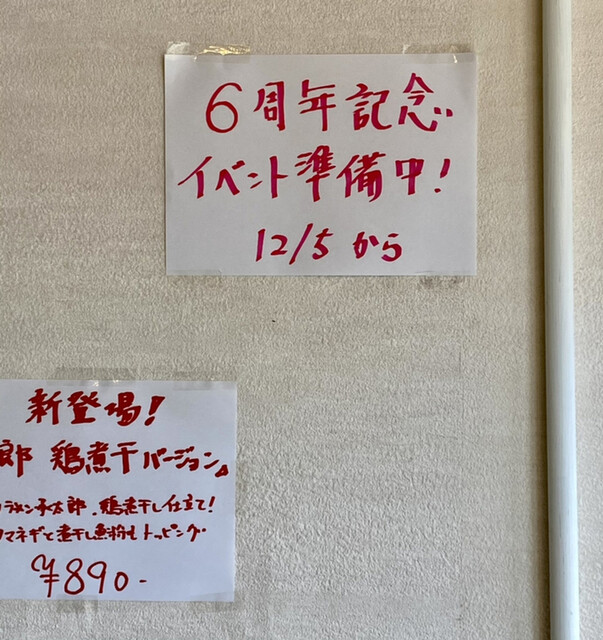 6周年記念
イベント準備中！
12/5 から
新登場！
郎 鶏煮干バージョン。
太郎、鶏煮干し仕立て！
マネギと煮干し魚粉もトッピング
¥890-